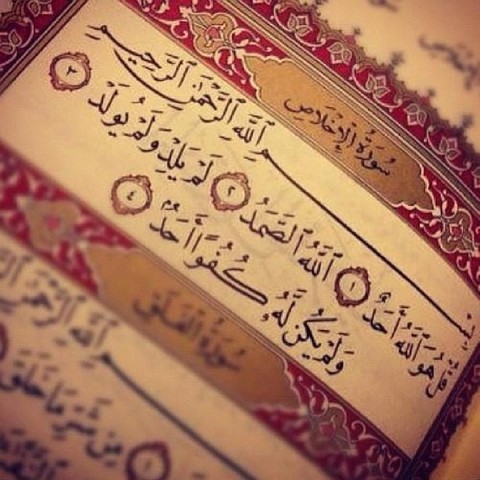 سُورَةُ الإِخْلَاصِ
بِسْمِ اللَّهِ الرَّحْمَٰنِ الرَّحِيمِ
قُلْ هُوَ اللَّهُ أَحَدٌ ١ اللَّهُ الصَّمَدُ ٢ لَمْ يَلِدْ وَلَمْ يُولَدْ ٣
وَلَمْ يَكُن لَّهُ كُفُوًا أَحَدٌ ٤
سُورَةُ الفَلَقِ
اللَّهِ الرَّحْمَٰنِ
١ مِن شَرِّ مَا خَلَقَ